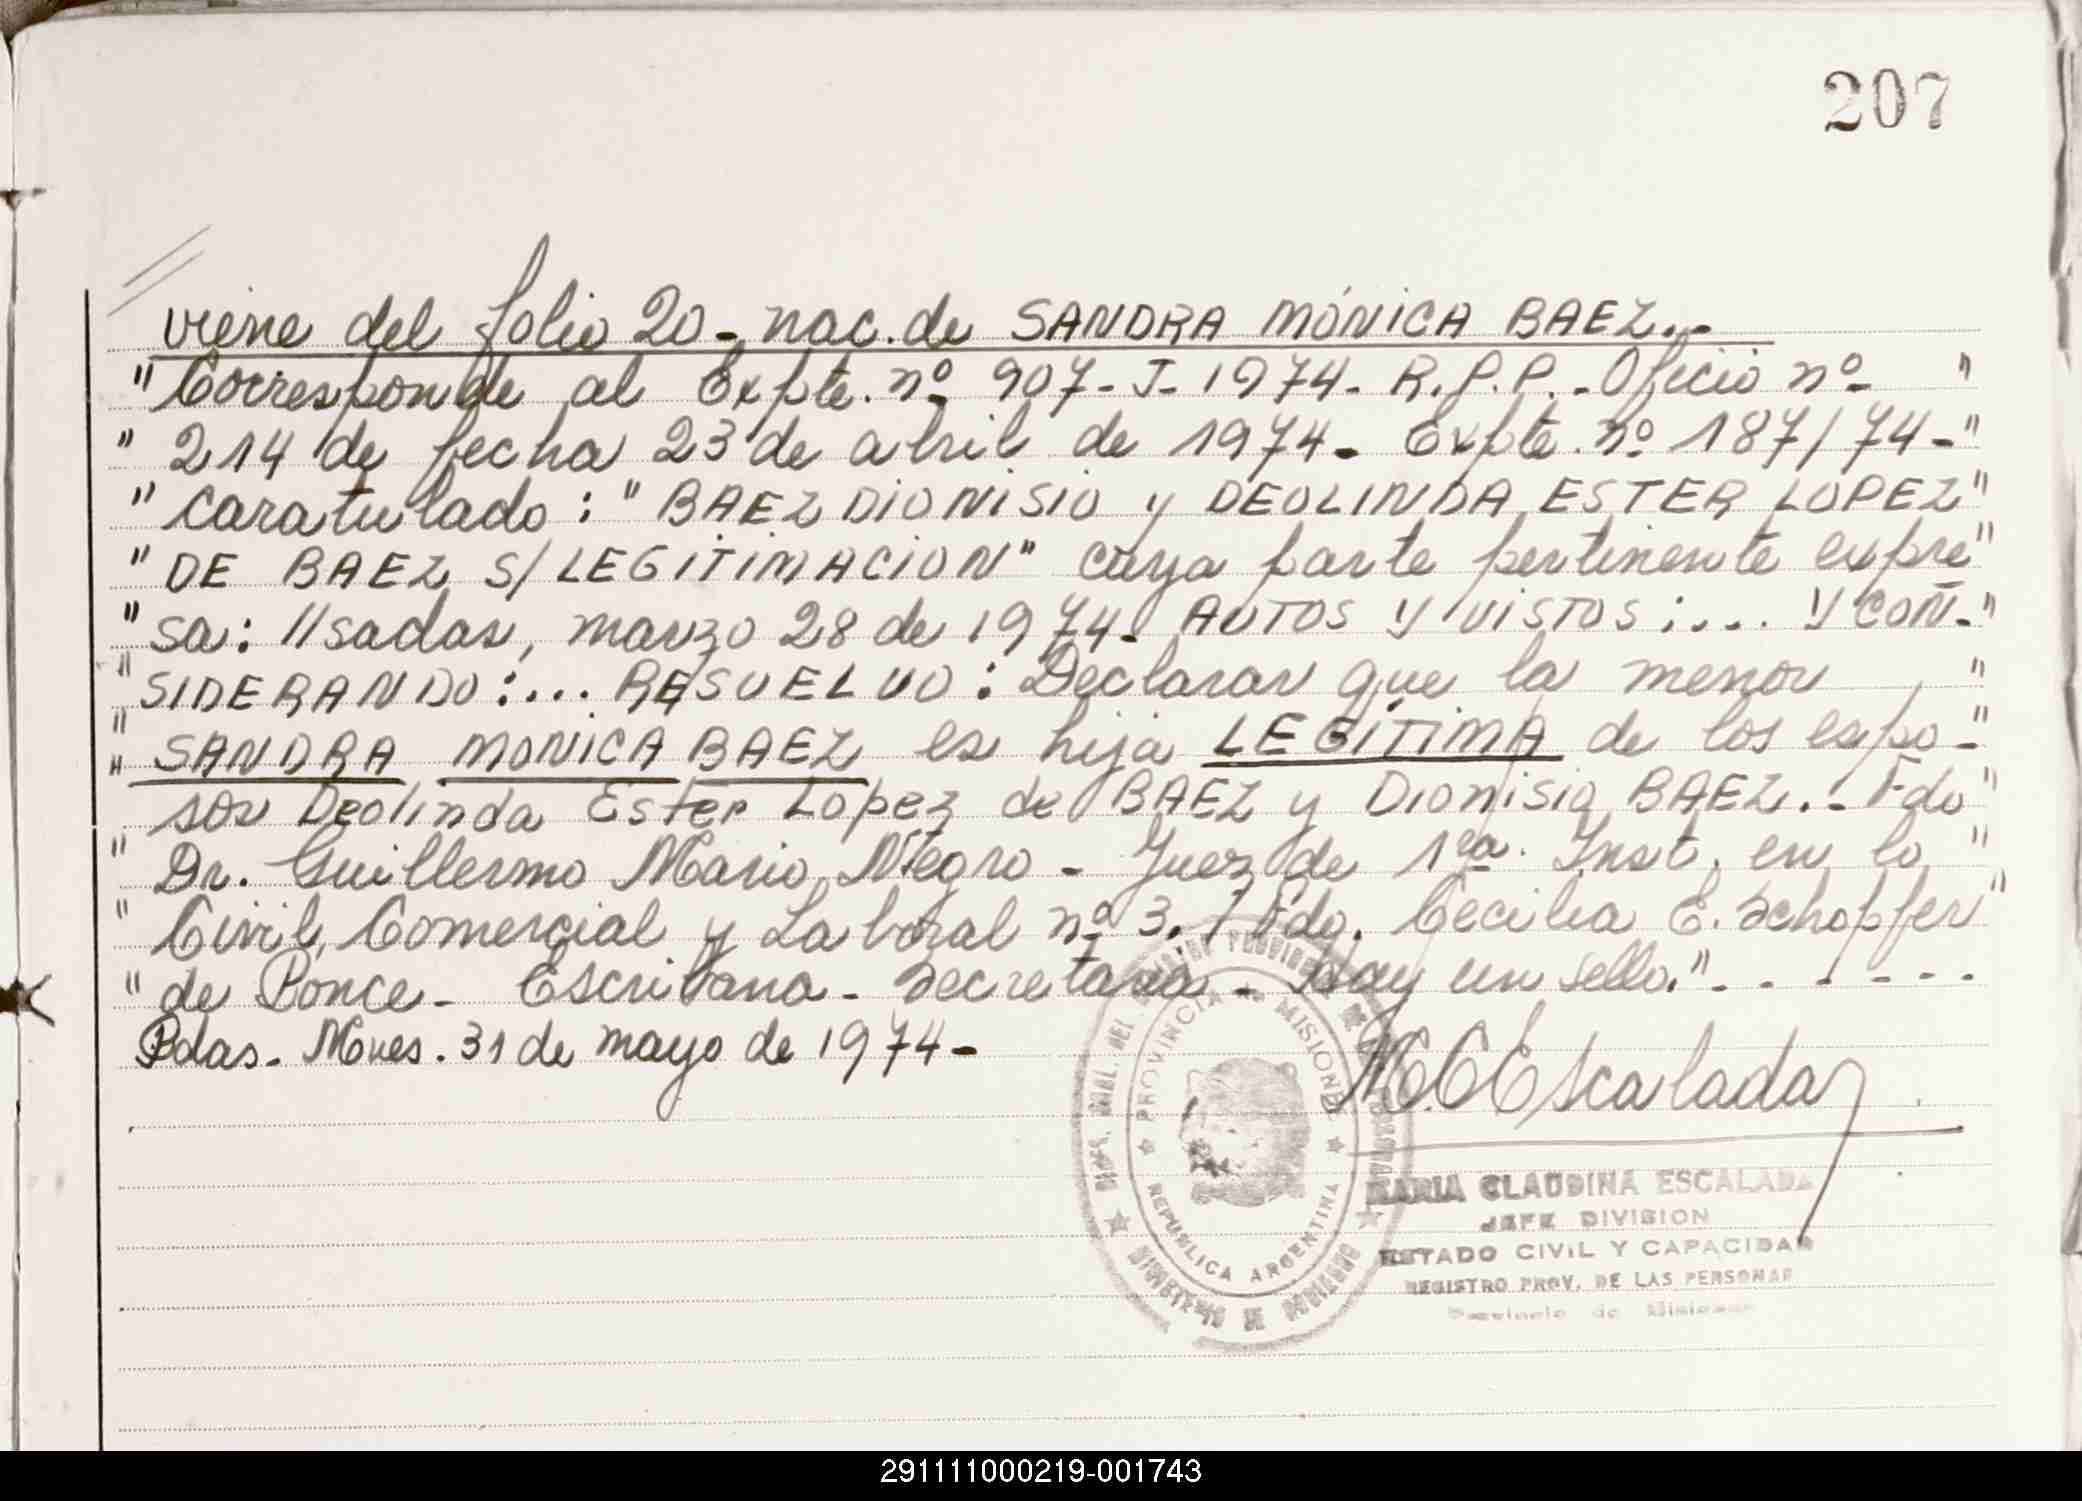 207
viene del folio 20- nac. de SANDRA MÓNICA BAEZ.-
"Corresponde al Expte. nº 907- J- 1974- R.P.P.- Oficio nº "
"214 de fecha 23 de abril de 1974- Expte. nº 187/74-"
"caratulado: "BAEZ DIONISIO y DEOLINDA ESTER LOPEZ"
"DE BAEZ S/ LEGITIMACION" cuya parte pertinente expre"
"sa: //sadas, marzo 28 de 1974- AUTOS Y VISTOS:.... Y CON-"
"SIDERANDO:... RESUELVO: Declarar que la menor "
"SANDRA MONICA BAEZ es hija LEGÍTIMA de los espo-"
"sos Deolinda Ester Lopez de BAEZ y Dionisio BAEZ.- Fdo"
"Dr. Guillermo Mario Negro - Juez de 1ea. Inst. en lo "
"Civil, Comercial y Laboral nº 3. / Fdo. Cecilia E. Schopfer"
"de Ponce- Escribana- Secretaria- Hay un sello."- - - - - -
Pdas- Mnes. 31 de mayo de 1974-
M.C.Escalada
MARIA CLAUDINA ESCALADA
JEFE DIVISION
ESTADO CIVIL Y CAPACIDAD
REGISTRO PROV. DE LAS PERSONAS
Provincia de Misiones
PROVINCIA DE MISIONES
REPUBLICA ARGENTINA
MINISTERIO DE GOBIERNO
291111000219-001743